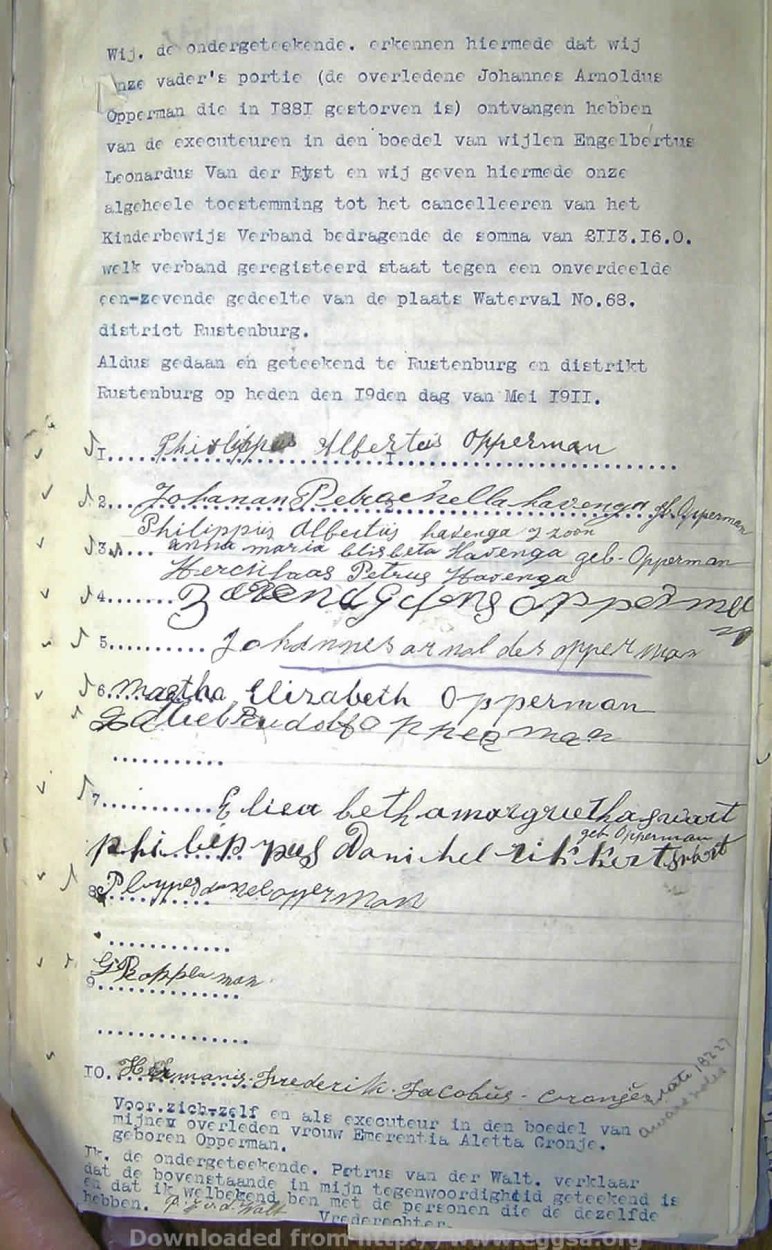 Wij. de ondergeteekende. erkennen hiermede dat wij
nze vader's portie (de overledene Johannes Arnoldus
Opperman die in I88I gestorven is) ontvangen hebben
van de executeuren in den boedel van wijlen Engelbertus
Leonardus Van der Ryst en wij geven hiermede onze
algeheele toestemming tot het cancelleeren van het
Kinderbewijs Verband bedragende de somma van £II3.I6.0.
welk verband geregisteerd staat tegen een onverdeelde
een-zevende gedeelte van de plaats Waterval No.68.
district Rustenburg.
Aldus gedaan en geteekend te Rustenburg en distrikt
Rustenburg op heden den I9den dag van Mei I9II.
I. Philippus Albertus Opperman
2. Johanan Havenga gb. Opperman
Philippus Albertus havenga z zoon
3. anna maria Elisbeta Havenga geb- Opperman
Petrus Havenga
4. opperman
5. Johannes arnoldes opperman
6. Magtha Elizabeth Opperman
Rudolf Opperman
7. Elisa betha margrietha swart
geb Opperman
philippus Danichel rikkert swart
8. opperman
9. opperman
IO. Hermanis. Frederik. Jacobus-
Estate 18227
Voor.zich-zelf en als executeur in den boedel van
mijnen overleden vrouw Emerentia Aletta Cronje.
geboren Opperman.
Ik. de ondergeteekende. Petrus van der Walt. verklaar
dat de bovenstaande in mijn tegenwoordigheid geteekend is
en dat ik welbekend ben met de personen die de dezelfde
hebben. P. v. d. Walt
Vrederechter.
Downloaded from http://www.eggsa.org